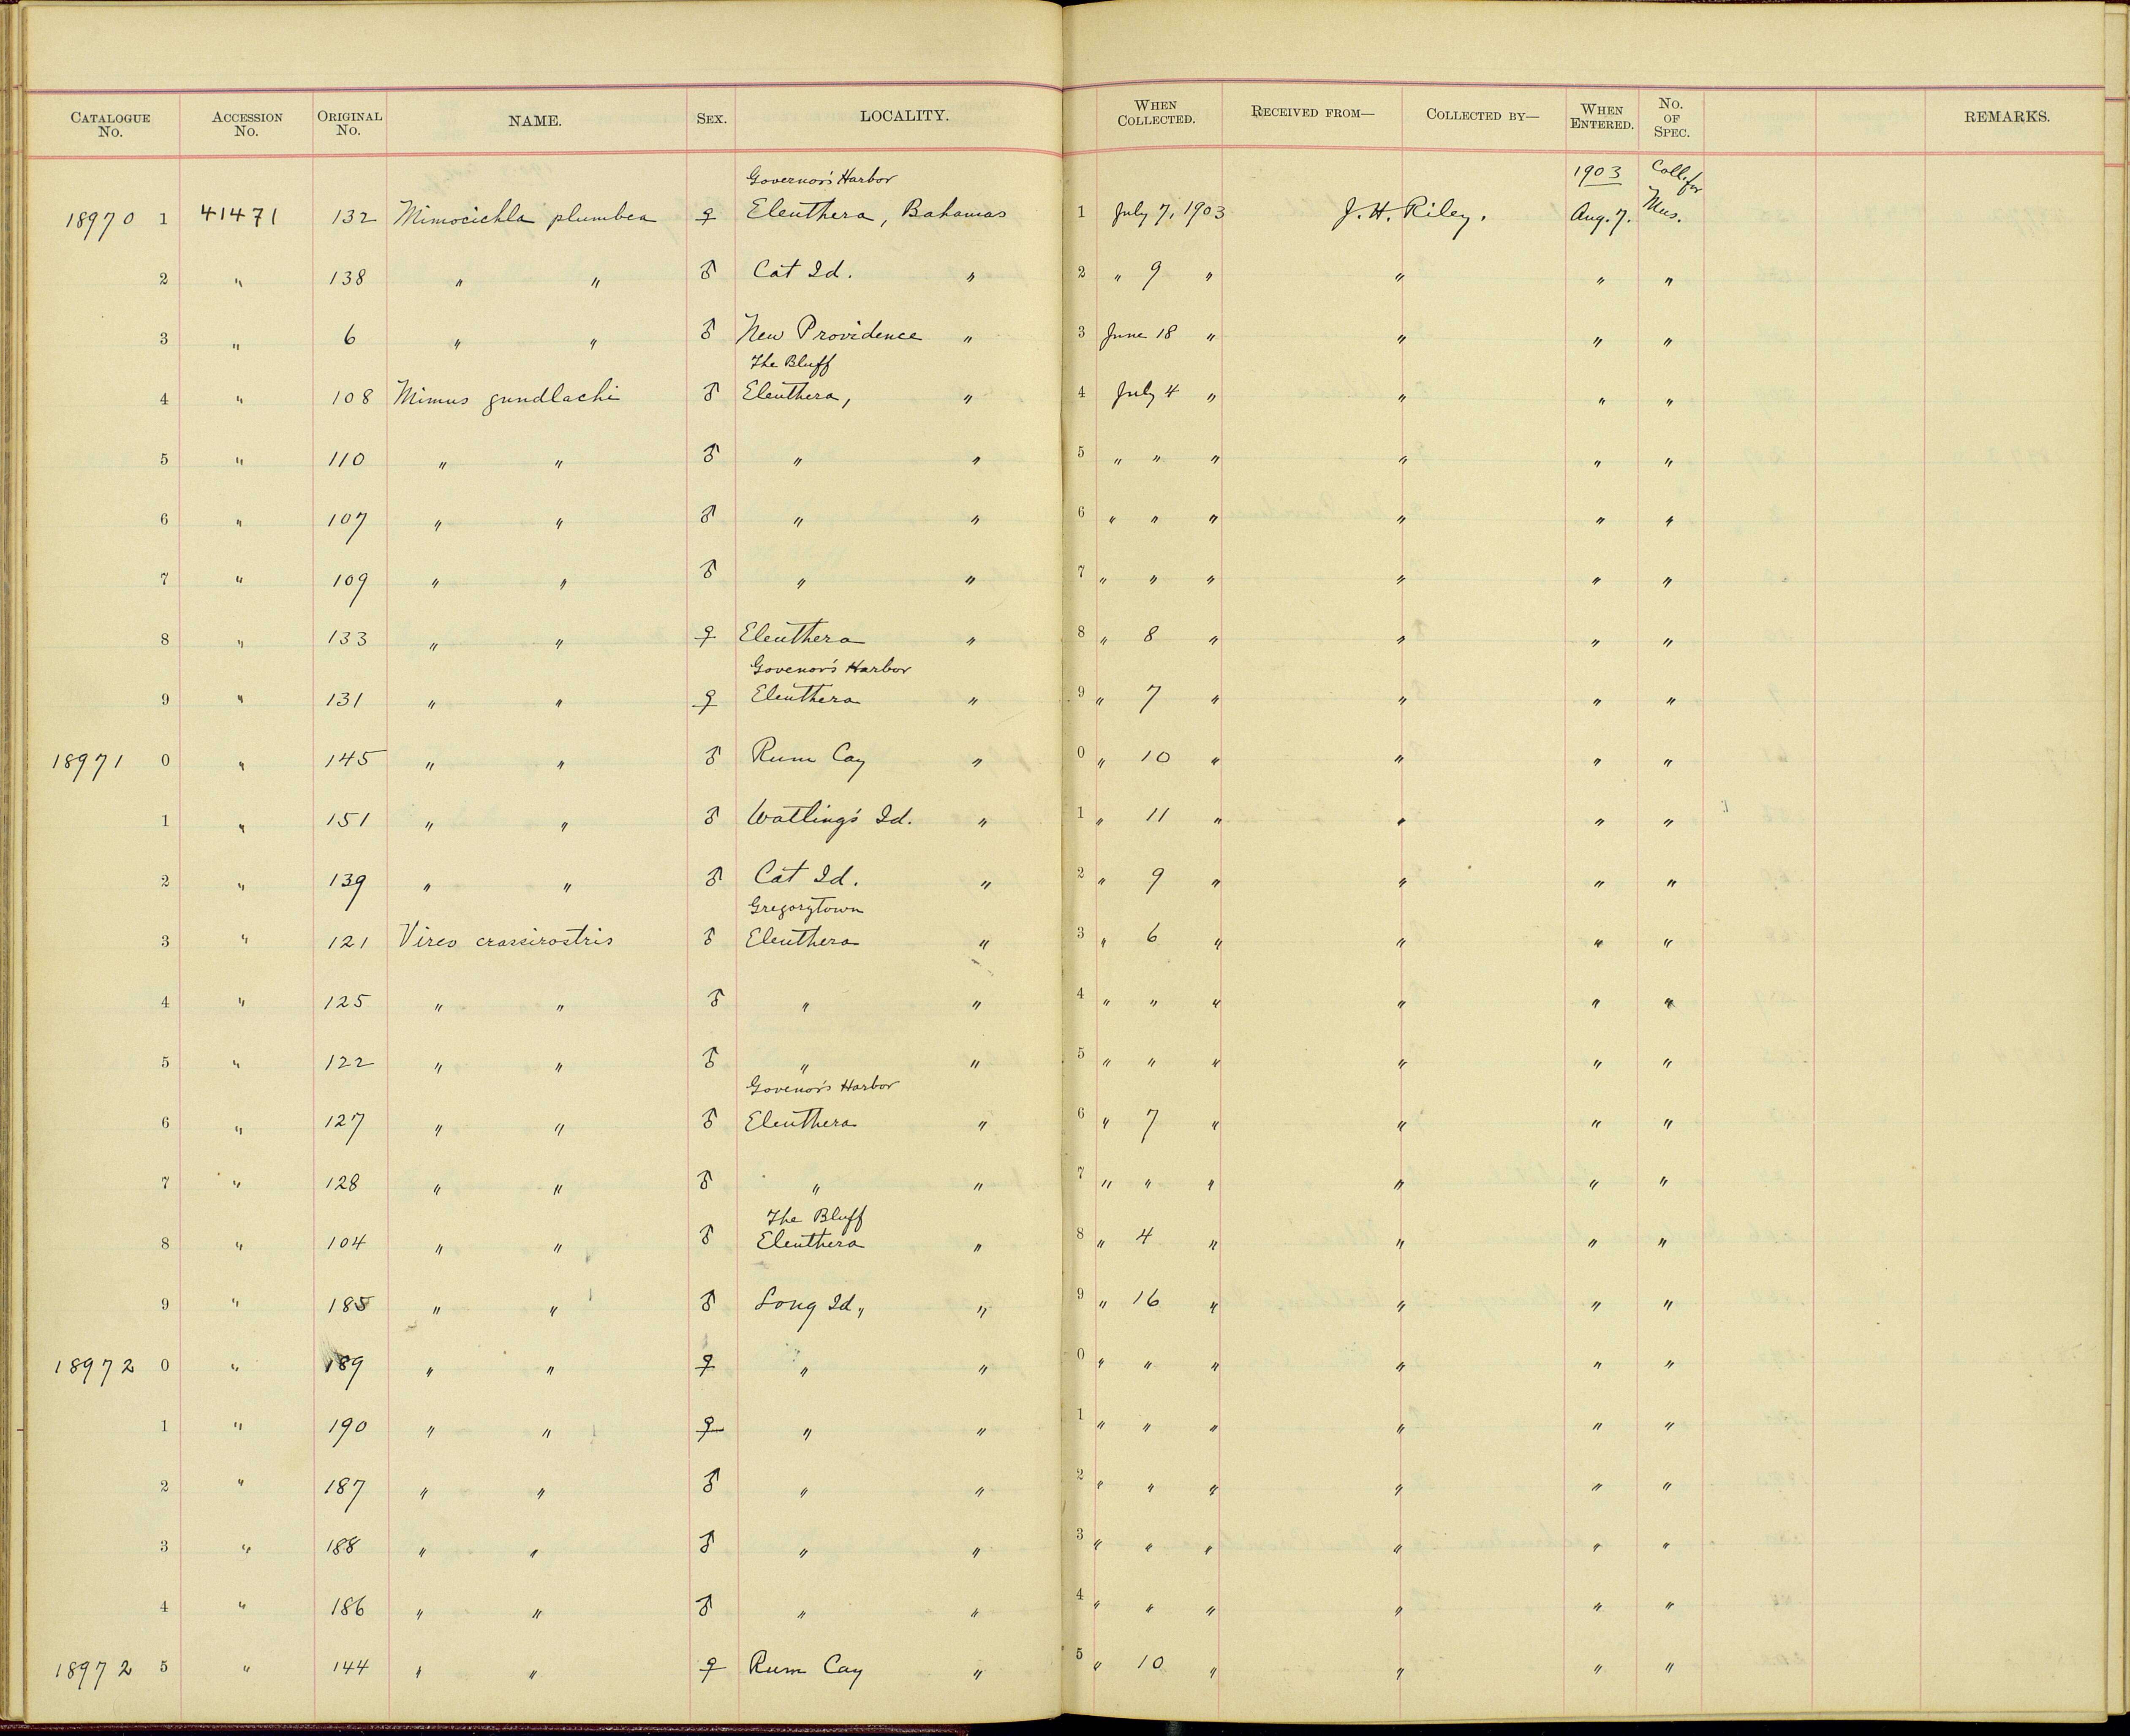 CATALOGUE No. ACCESSION No. ORIGINAL No. NAME. SEX. LOCALITY. WHEN COLLECTED. RECEIVED FROM— COLLECTED BY— WHEN ENTERED. No. OF SPEC. REMARKS.
Governor's Harbor 1903 Coll. for
18970 1 41471 132 Mimocichla plumbea ♀ Eleuthera, Bahamas 1 July 7, 1903 J. H. Riley. Aug. 7. Mus.
2 " 138 " " ♂ Cat Id. " 2 " 9 " " " "
3 " 6 " " ♂ New Providence " 3 June 18 " " " "
The Bluff
4 " 108 Mimus gundlachi ♂ Eleuthera, " 4 July 4 " " " "
5 " 110 " " ♂ " " 5 " " " " " "
6 " 107 " " ♂ " " 6 " " " " " "
7 " 109 " " ♂ " " 7 " " " " " "
8 " 133 " " ♀ Eleuthera " 8 " 8 " " " "
Govenor's Harbor
9 " 131 " " ♀ Eleuthera " 9 " 7 " " " "
18971 0 " 145 " " ♂ Rum Cay " 0 " 10 " " " "
1 " 151 " " ♂ Watling's Id. " 1 " 11 " " " "
2 " 139 " " ♂ Cat Id. " 2 " 9 " " " "
Gregorytown
3 " 121 Vireo crassirostris ♂ Eleuthera " 3 " 6 " " " "
4 " 125 " " ♂ " " 4 " " " " " "
5 " 122 " " ♂ " " 5 " " " " " "
Govenor's Harbor
6 " 127 " " ♂ Eleuthera " 6 " 7 " " " "
7 " 128 " " ♂ " " 7 " " " " " "
The Bluff
8 " 104 " " ♂ Eleuthera " 8 " 4 " " " "
9 " 185 " " ♂ Long Id., " 9 " 16 " " " "
18972 0 " 189 " " ♀ " " 0 " " " " " "
1 " 190 " " ♀ " " 1 " " " " " "
2 " 187 " " ♂ " " 2 " " " " " "
3 " 188 " " ♂ " " 3 " " " " " "
4 " 186 " " ♂ " " 4 " " " " " "
18972 5 " 144 " " ♀ Rum Cay " 5 " 10 " " " "